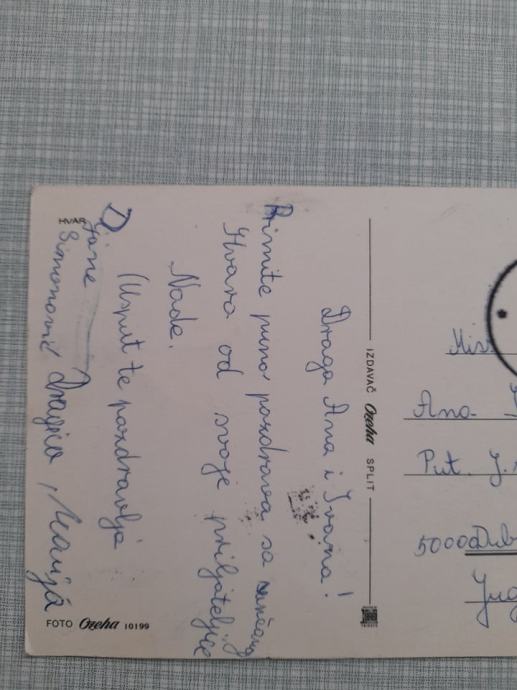 HVAR
Draga Ana i Ivana!
Primite puno pozdrava sa sunčanog
Hvara od svoje prijateljice
Nade.
(Usput te pozdravlja
Simonović Dragica, Marija
IZDAVAČ Ozeha SPLIT
FOTO Ozeha 10199
Ana
Put J.
5000 Dub
Jug